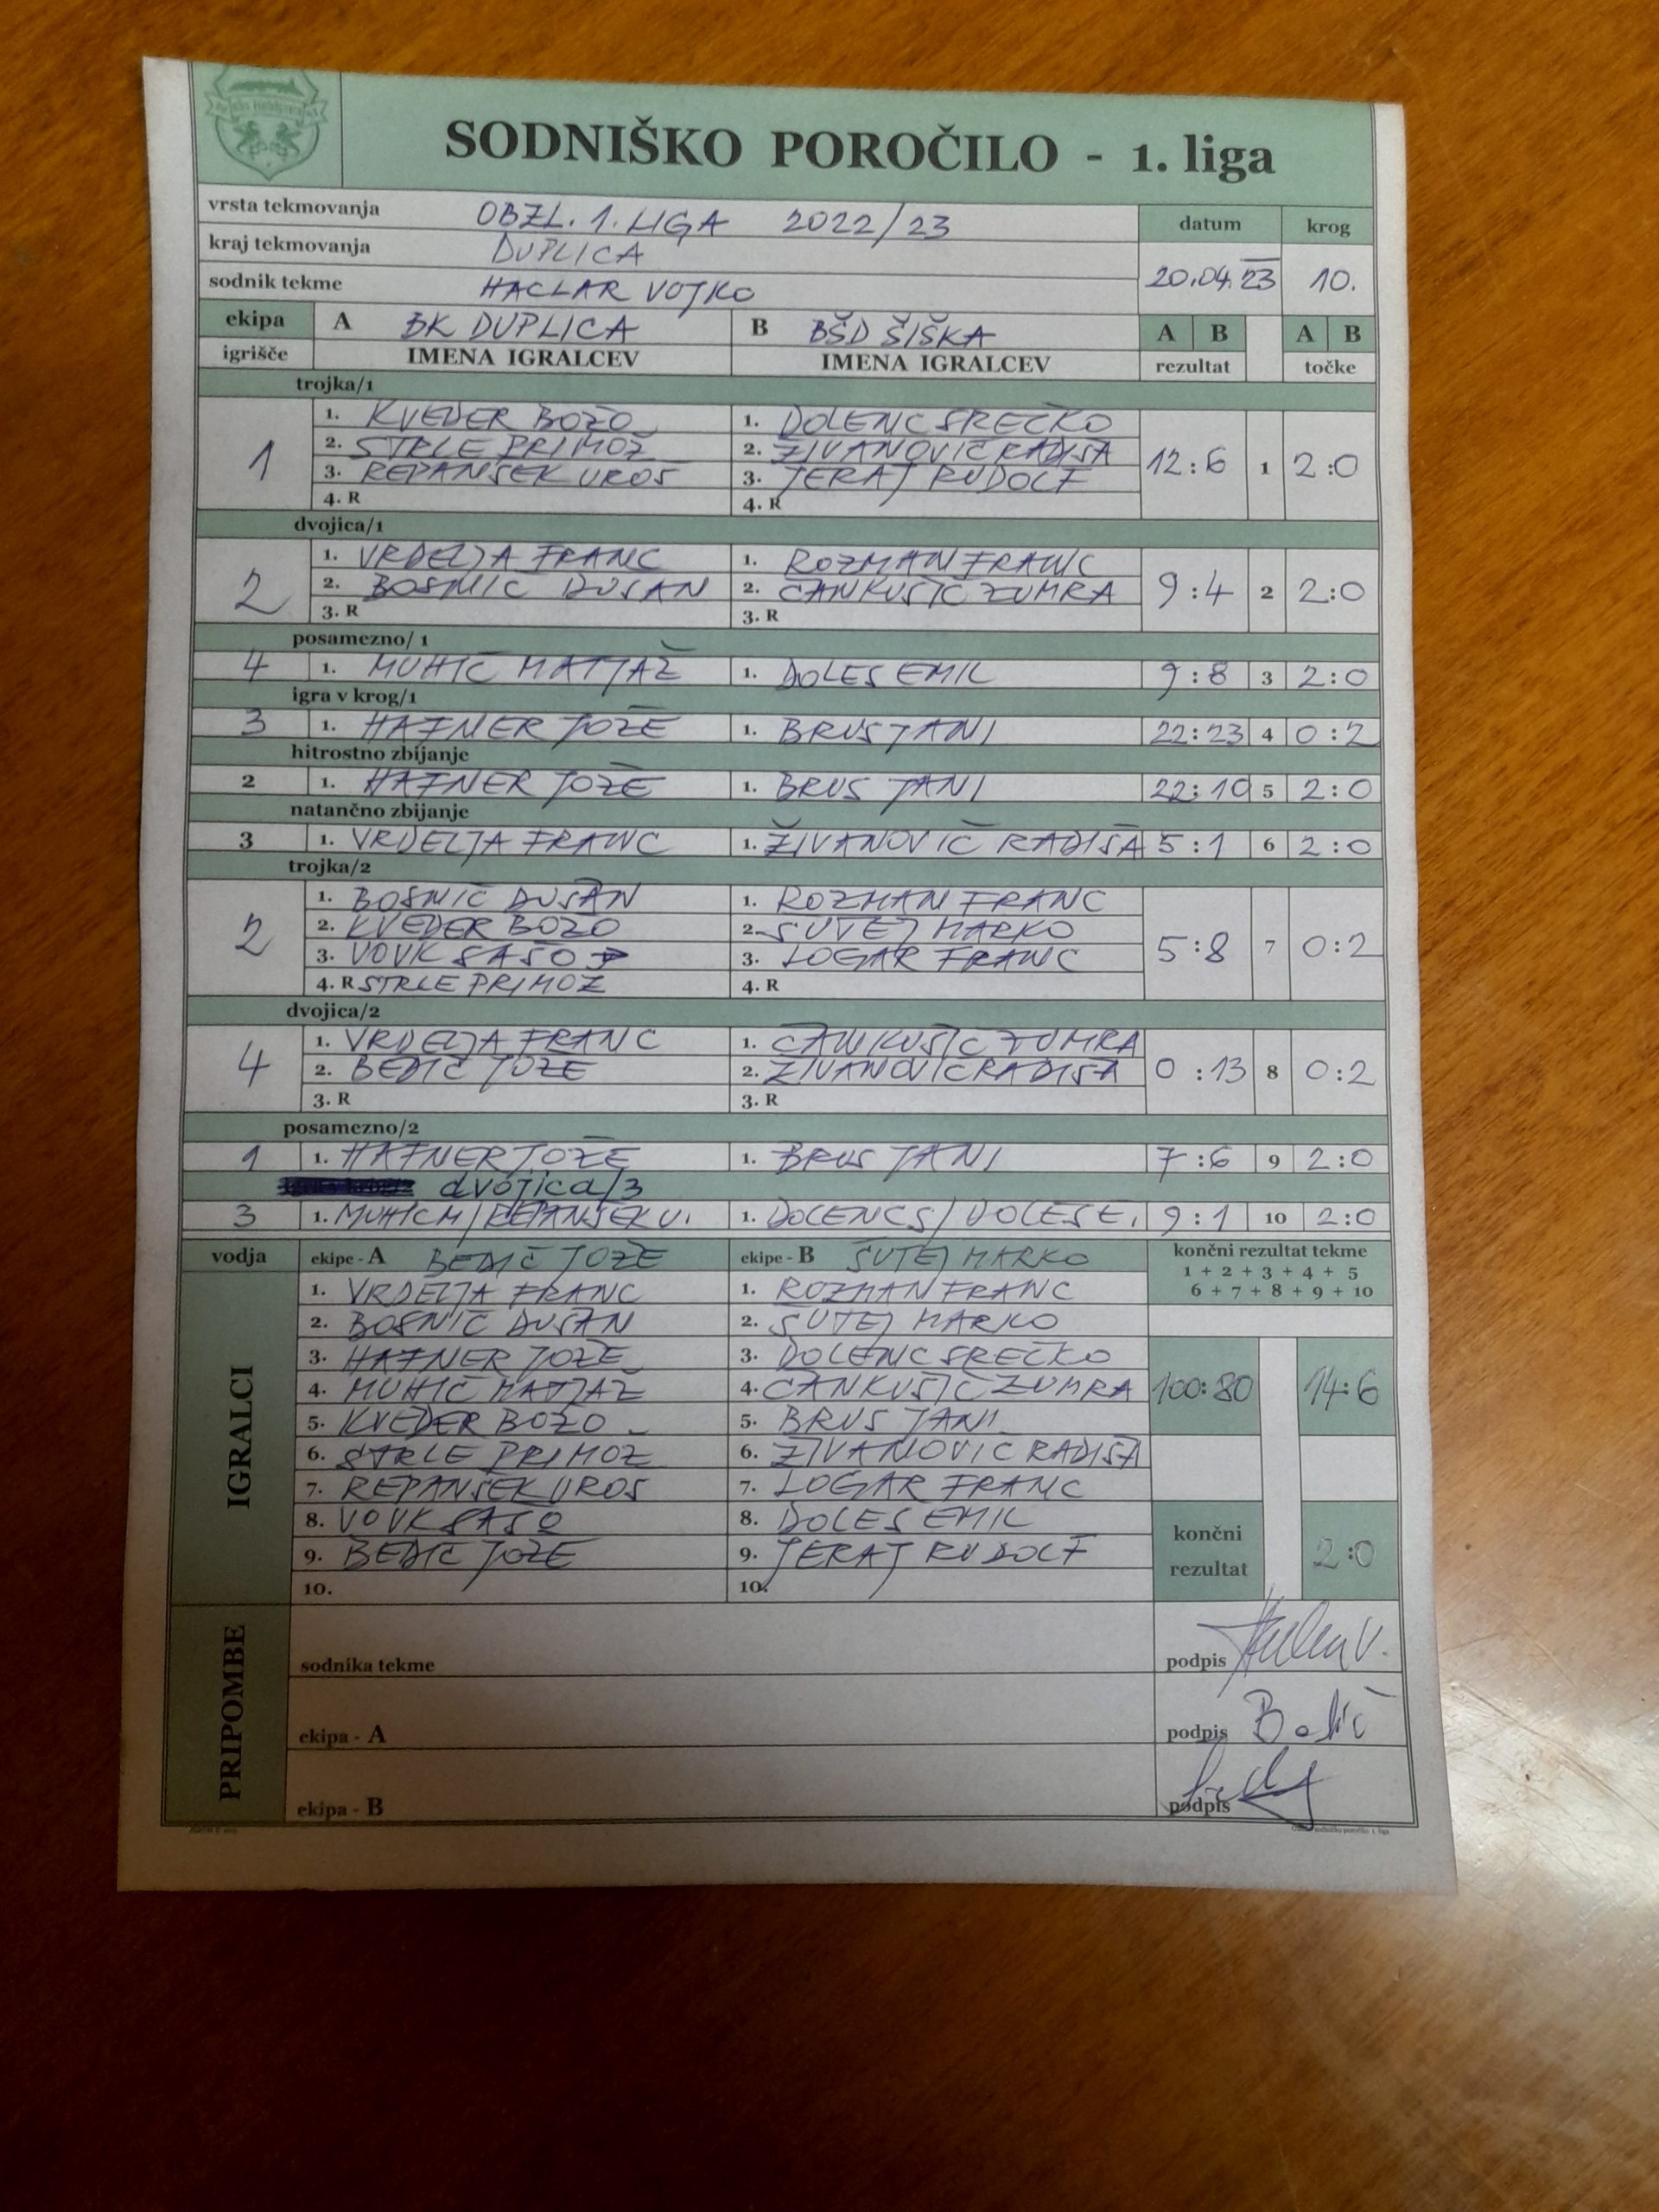 SODNIŠKO POROČILO - 1. liga
vrsta tekmovanja OBZL. 1. LIGA 2022/23 datum krog
kraj tekmovanja DUPLICA
sodnik tekme HACLAR VOJKO 20.04.23 10.
ekipa A BK DUPLICA B BŠD ŠIŠKA A B A B
igrišče IMENA IGRALCEV IMENA IGRALCEV rezultat točke
trojka/1
1. KVEDER BOŽO 1. DOLENC SREČKO
2. STRLE PRIMOŽ 2. ŽIVANOVIČ RADIŠA
1 3. REPANŠEK UROŠ 3. JERAJ RUDOLF 12:6 1 2:0
4. R 4. R
dvojica/1
1. VRDELJA FRANC 1. ROZMAN FRANC
2 2. BOSNIČ DUŠAN 2. ČANKUŠIČ ZUMRA 9:4 2 2:0
3. R 3. R
posamezno/ 1
4 1. MUHIČ MATJAŽ 1. DOLES EMIL 9:8 3 2:0
igra v krog/1
3 1. HAFNER JOŽE 1. BRUS JANI 22:23 4 0:2
hitrostno zbijanje
2 1. HAFNER JOŽE 1. BRUS JANI 22:10 5 2:0
natančno zbijanje
3 1. VRDELJA FRANC 1. ŽIVANOVIČ RADIŠA 5:1 6 2:0
trojka/2
1. BOSNIČ DUŠAN 1. ROZMAN FRANC
2. KVEDER BOŽO 2. ŠUTEJ MARKO
2 3. VOVK SAŠO 3. LOGAR FRANC 5:8 7 0:2
4. R STRLE PRIMOŽ 4. R
dvojica/2
1. VRDELJA FRANC 1. ČANKUŠIČ ZUMRA
4 2. BEDIČ JOŽE 2. ŽIVANOVIČ RADIŠA 0:13 8 0:2
3. R 3. R
posamezno/2
1 1. HAFNER JOŽE 1. BRUS JANI 7:6 9 2:0
dvojica/3
3 1. MUHIČ M/REPANŠEK U. 1. DOLENC S/DOLES E. 9:1 10 2:0
vodja ekipe - A BEDIČ JOŽE ekipe - B ŠUTEJ MARKO končni rezultat tekme
1 + 2 + 3 + 4 + 5
6 + 7 + 8 + 9 + 10
IGRALCI
1. VRDELJA FRANC 1. ROZMAN FRANC
2. BOSNIČ DUŠAN 2. ŠUTEJ MARKO
3. HAFNER JOŽE 3. DOLENC SREČKO
4. MUHIČ MATJAŽ 4. ČANKUŠIČ ZUMRA 100:80 14:6
5. KVEDER BOŽO 5. BRUS JANI
6. STRLE PRIMOŽ 6. ŽIVANOVIČ RADIŠA
7. REPANŠEK UROŠ 7. LOGAR FRANC
8. VOVK SAŠO 8. DOLES EMIL končni
9. BEDIČ JOŽE 9. JERAJ RUDOLF rezultat 2:0
10. 10.
PRIPOMBE
sodnika tekme podpis
ekipa - A podpis Bedič
ekipa - B podpis